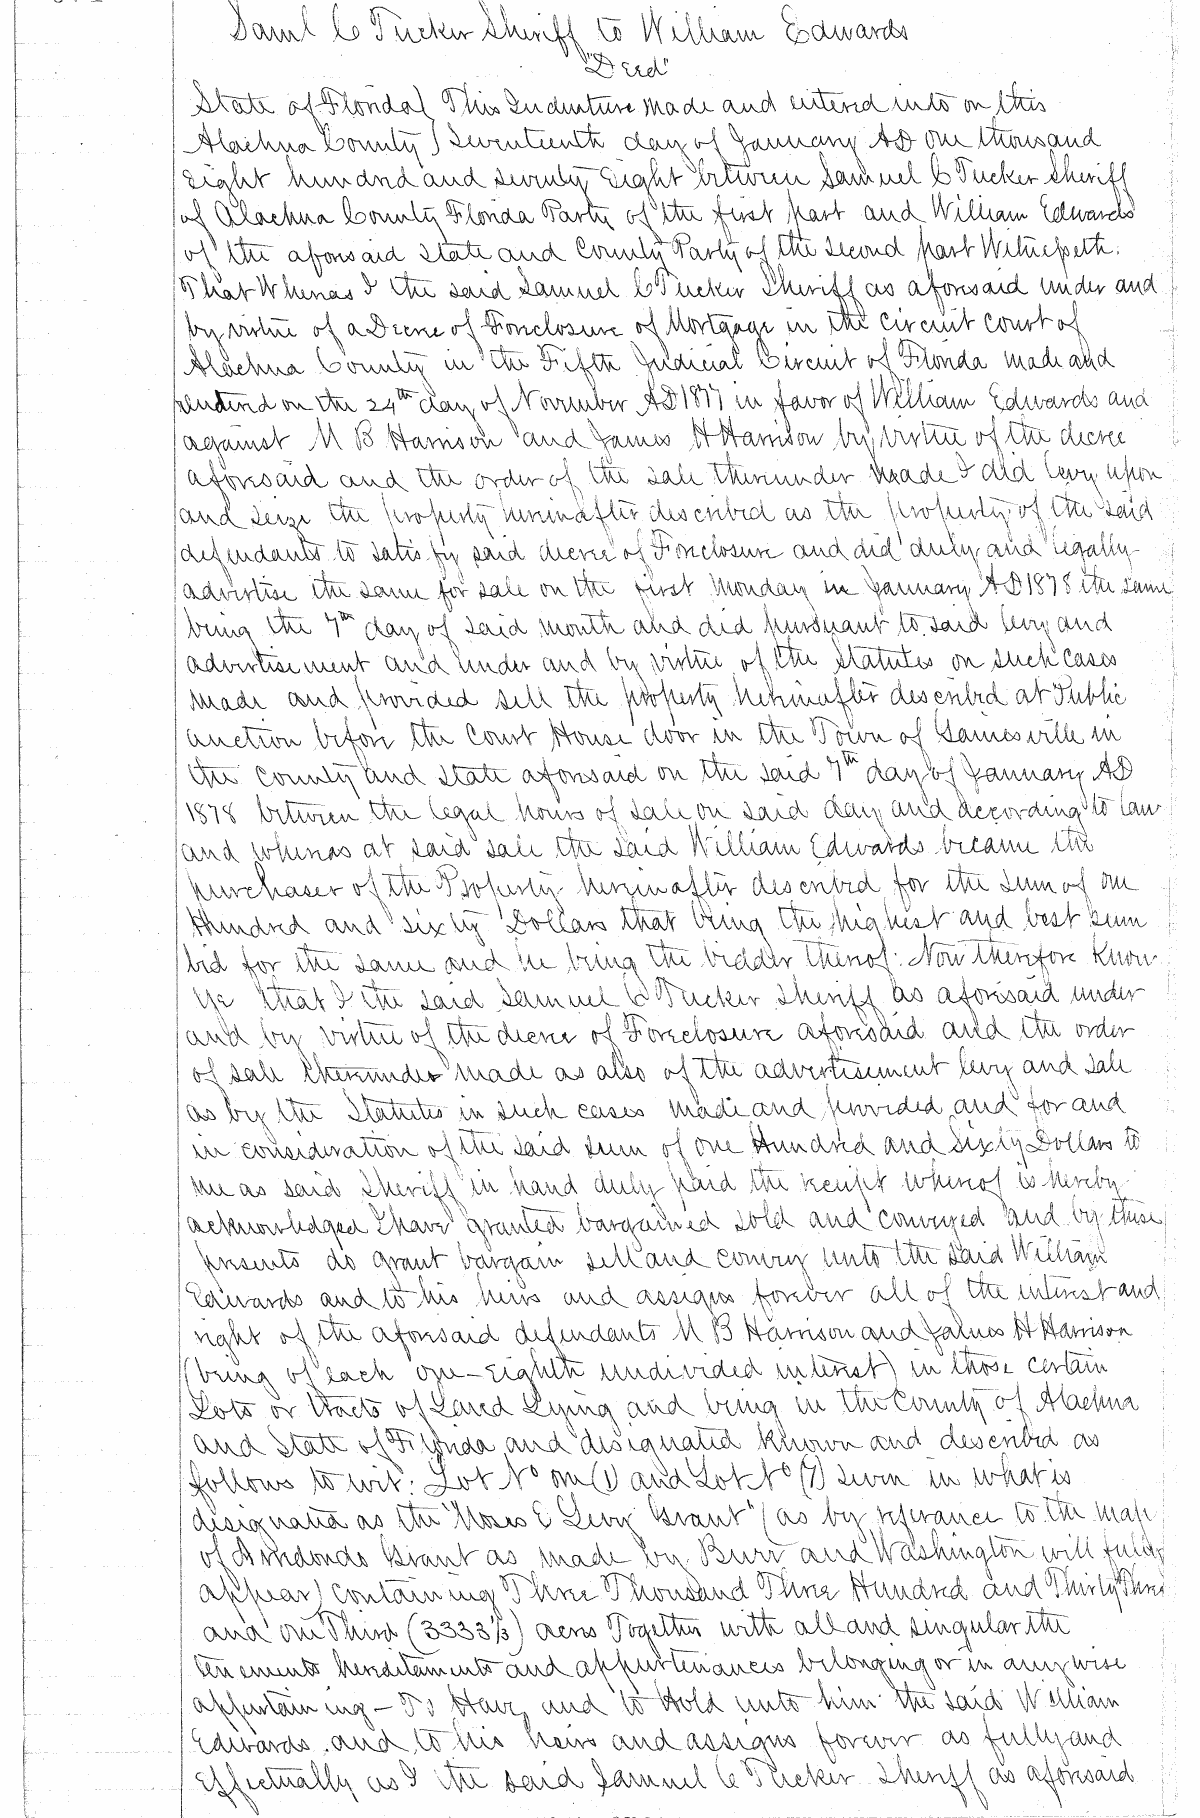 Saml C Tucker Sheriff to William Edwards
"Deed"
State of Florida } This Indenture made and entered into on this
Alachua County } Seventeenth day of January AD one thousand
Eight hundred and seventy Eight between Samuel C Tucker Sheriff
of Alachua County Florida Party of the first part and William Edwards
of the aforesaid State and County Party of the second part Witnesseth.
That Whereas I the said Samuel C Tucker Sheriff as aforesaid under and
by virtue of a Decree of Foreclosure of Mortgage in the circuit court of
Alachua County in the Fifth Judicial Circuit of Florida made and
rendered on the 24th day of November AD 1877 in favor of William Edwards and
against M B Harrison and James H Harrison by virtue of the decree
aforesaid and the order of the sale thereunder made I did levy upon
and seize the property hereinafter described as the property of the said
defendants to satisfy said decree of Foreclosure and did duly and legally
advertise the same for sale on the first Monday in January AD 1878 the same
being the 7th day of said month and did pursuant to said levy and
advertisement and under and by virtue of the Statutes on such cases
made and provided sell the property hereinafter described at Public
auction before the Court House door in the Town of Gainesville in
the County and State aforesaid on the said 7th day of January AD
1878 between the legal hours of sale on said day and according to law
and whereas at said sale the said William Edwards became the
purchaser of the Property hereinafter described for the sum of one
Hundred and sixty Dollars that being the highest and best sum
bid for the same and he being the bidder thereof: Now therefore know
ye that I the said Samuel C Tucker Sheriff as aforesaid under
and by virtue of the decree of Foreclosure aforesaid and the order
of sale thereunder made as also of the advertisement levy and sale
as by the Statutes in such cases made and provided and for and
in consideration of the said sum of one Hundred and Sixty Dollars to
me as said Sheriff in hand duly paid the receipt whereof is hereby
acknowledged I have granted bargained sold and conveyed and by these
presents do grant bargain sell and convey unto the said William
Edwards and to his heirs and assigns forever all of the interest and
right of the aforesaid defendants M B Harrison and James H Harrison
(being of each one-eighth undivided interest) in those certain
Lots or tracts of Land Lying and being in the County of Alachua
and State of Florida and designated known and described as
follows to wit: Lot No one (1) and Lot No (7) seven in what is
designated as the "Moses E Levy Grant" (as by referance to the map
of Arredondo Grant as made by Burr and Washington will fully
appear) containing Three Thousand Three Hundred and Thirty Three
and one Third (3333 1/3) acres Together with all and singular the
tenements hereditaments and appurtenances belonging or in anywise
appertaining – To Have and to Hold unto him the said William
Edwards and to his heirs and assigns forever as fully and
Effectually as I the said Samuel C Tucker Sheriff as aforesaid